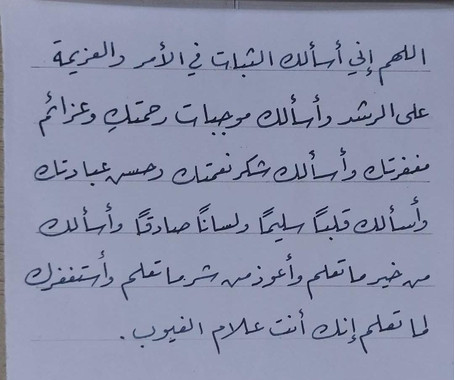 اللهم إني أسألك الثبات في الأمر والعزيمة
على الرشد وأسألك موجبات رحمتكِ وعزائم
مغفرتك وأسألك شكر نعمتك وحسن عبادتك
وأسألك قلباً سليماً ولساناً صادقاً وأسألك
من خير ما تعلم وأعوذ من شر ما تعلم وأستغفرك
لما تعلم إنك أنت علام الغيوب .